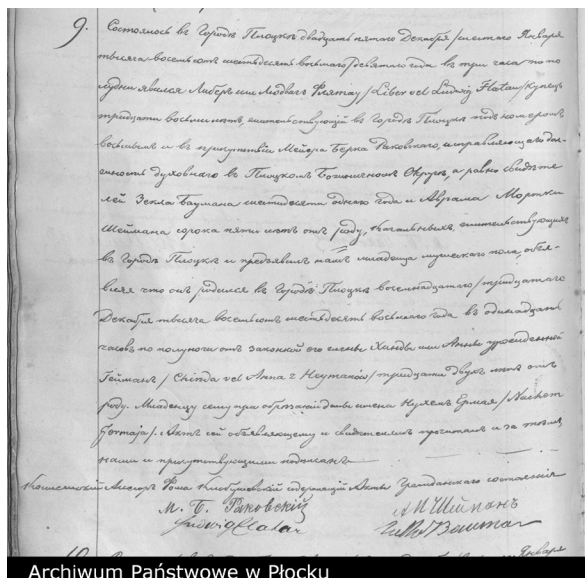 9. Состоялось въ Городѣ Плоцкѣ двадцать пятаго Декабря /шестаго Января
тысяча восемьсотъ шестьдесятъ восьмаго/девятаго года въ три часа по по
лудни явился Либеръ или Людвигъ Флятау /Liber vel Ludwig Flatau/ Купецъ
тридцати восьми лѣтъ, жительствующій въ Городѣ Плоцкѣ подъ номеромъ
восьмымъ и въ присутствіи Мейера Берка Раковскаго, исправляющаго дол
жность духовнаго въ Плоцкомъ Божничномъ Округѣ, а равно свидѣте
лей Зекла Баумана шестидесяти одного года и Аврама Мортки
Шеймана сорока пяти лѣтъ отъ роду, жительствующихъ
въ Городѣ Плоцкѣ и предъявилъ намъ младенца мужескаго пола, объя-
вляя что онъ родился въ Городѣ Плоцкѣ восемнадцатаго /тридцатаго
Декабря тысяча восемьсотъ шестьдесятъ восьмаго года въ одиннадцать
часовъ по полуночи отъ законной его жены Хинды или Анны урожденной
Гейманъ /Chinda vel Anna z Heymanów/ тридцати двухъ лѣтъ отъ
роду. Младенцу сему при обрѣзаніи даны имена
Актъ сей объявляющему и свидѣтелямъ прочитанъ и за тѣмъ
нами и присутствующими подписанъ
Ассесоръ Фома содержащій Акты Гражданскаго состоянія
М. Б. Раковскій А М Шейманъ
Ludwig Flatau Bauman
10. Января
Archiwum Państwowe w Płocku